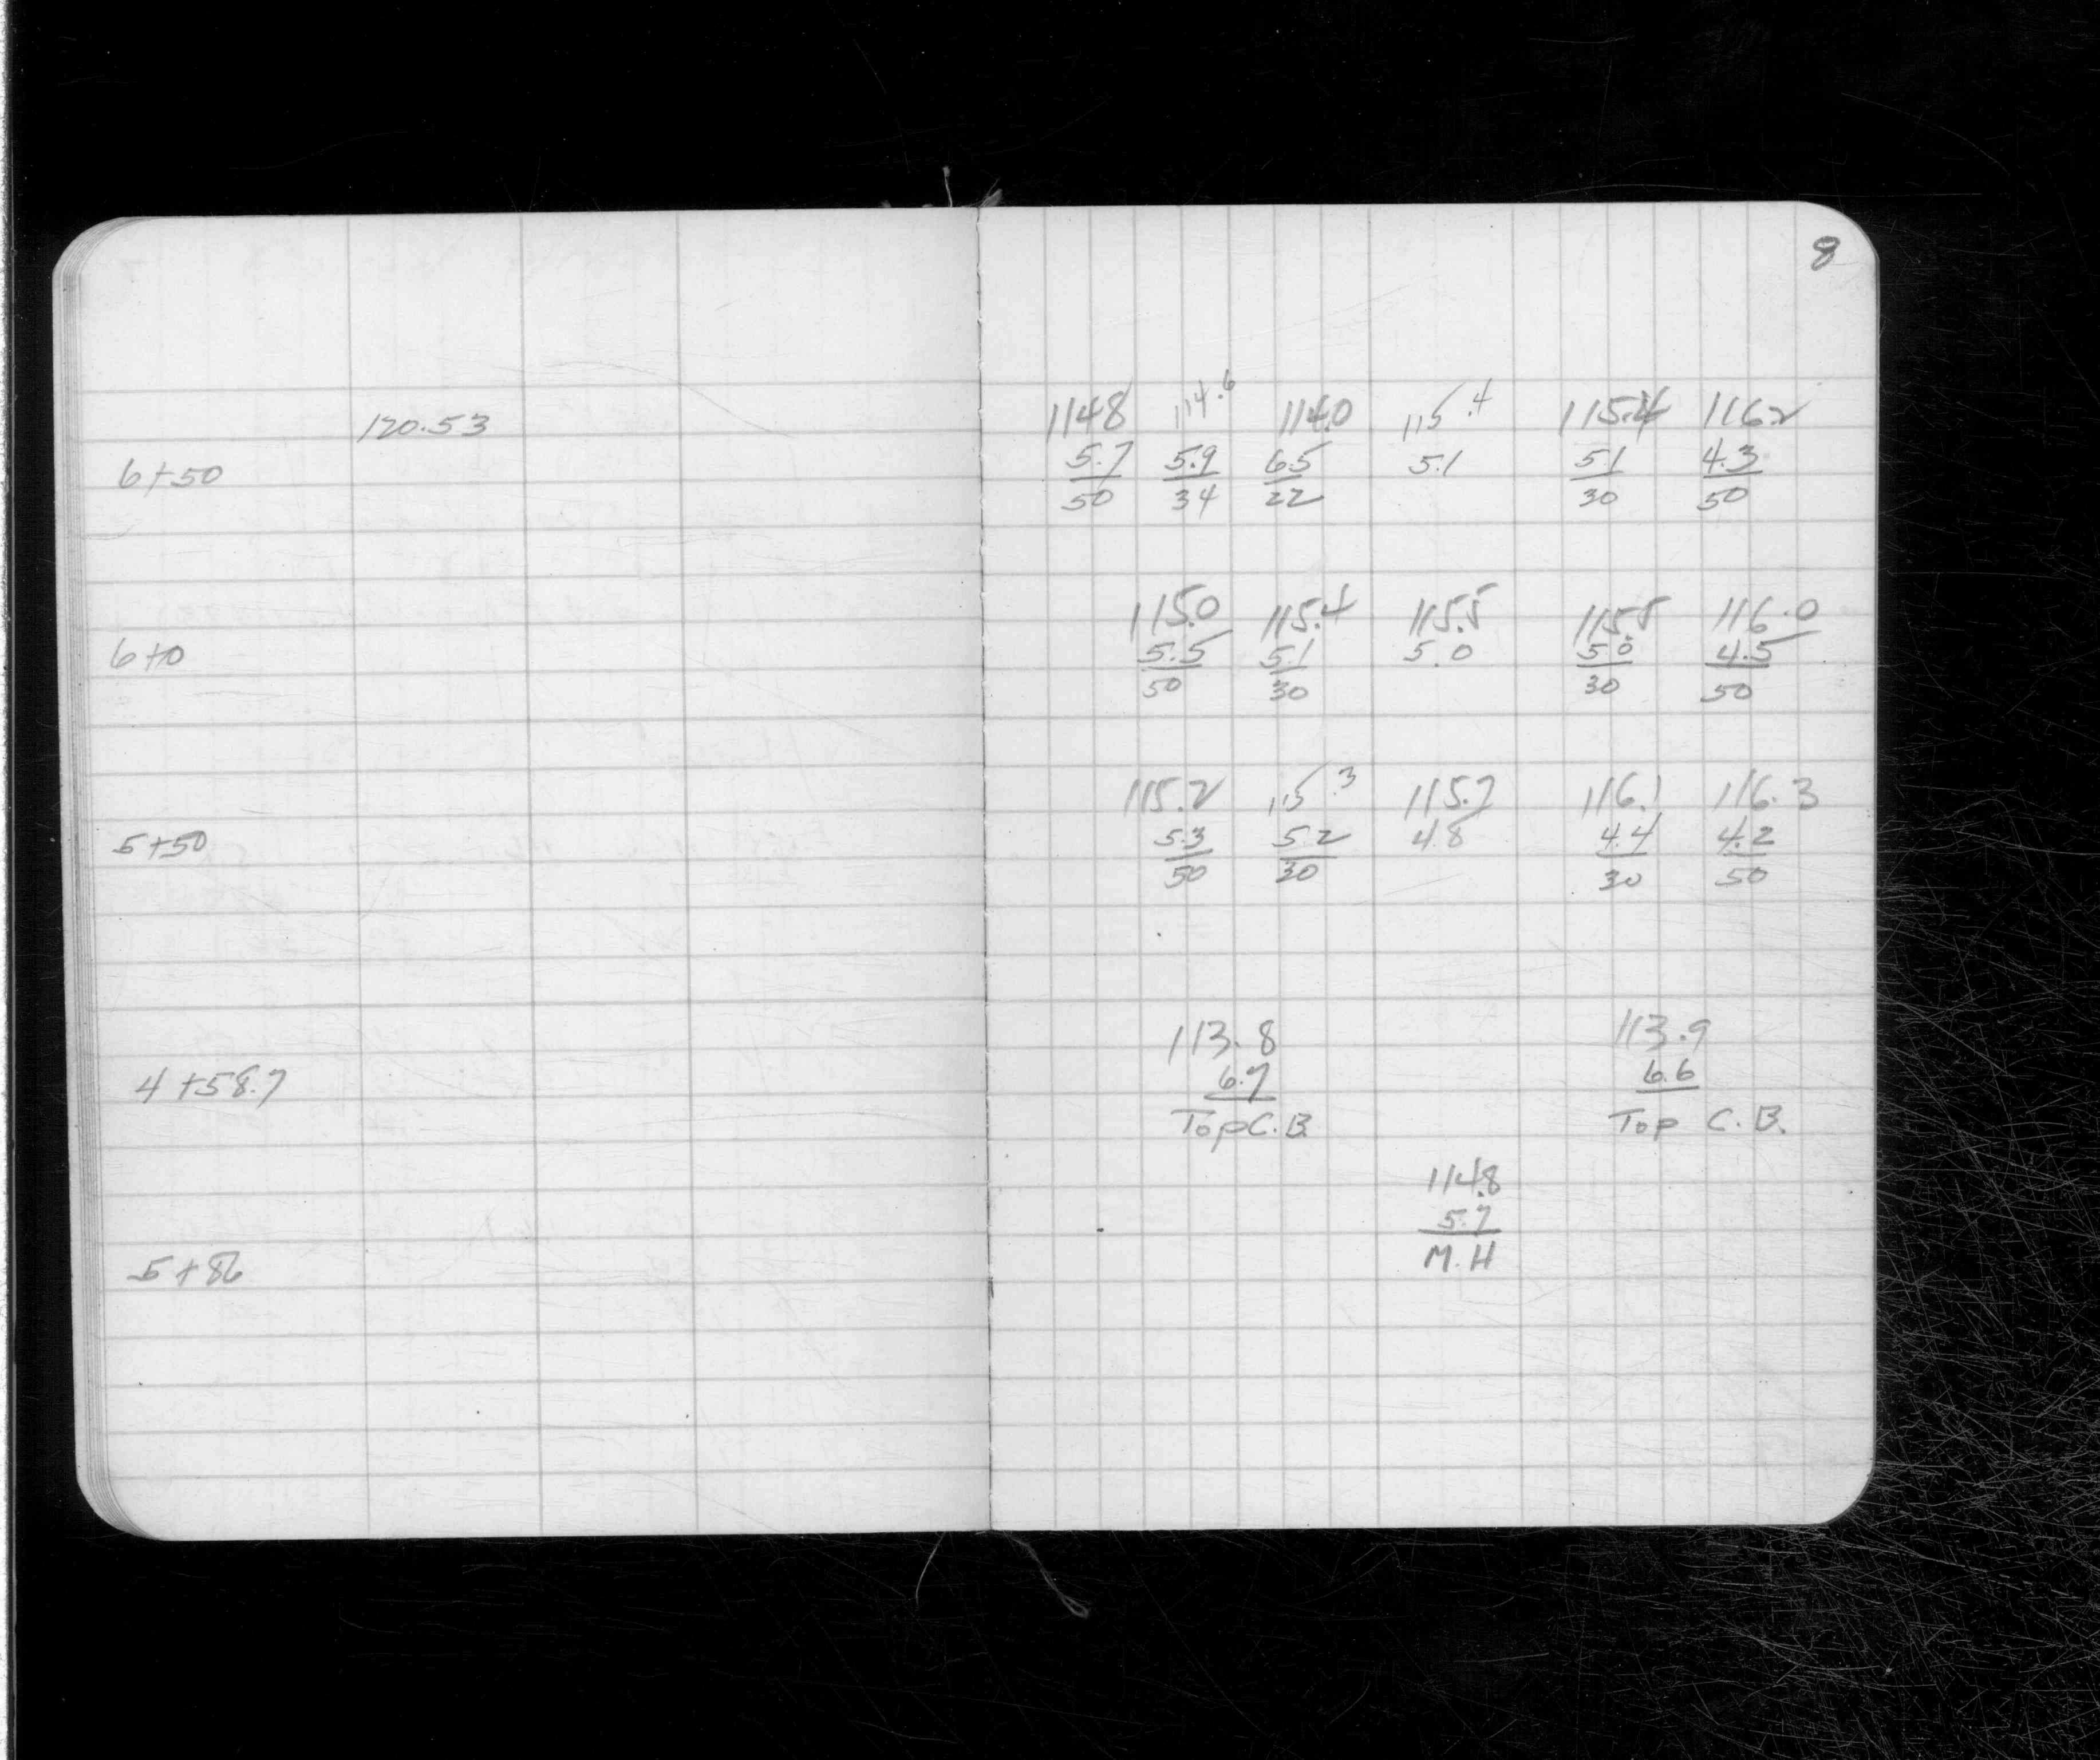 8
120.53
1148 114.6 114.0 115.4 115.4 1162
6+50 5.7 5.9 6.5 5.1 5.1 4.3
50 34 22 30 50
115.0 115.4 115.5 115.5 116.0
6+0 5.5 5.1 5.0 5.0 4.5
50 30 30 50
115.2 115.3 115.7 116.1 116.3
5+50 5.3 5.2 4.8 4.4 4.2
50 30 30 50
113.8 113.9
4+58.7 6.7 6.6
Top C.B. Top C.B.
114.8
5.7
5+86 M.H